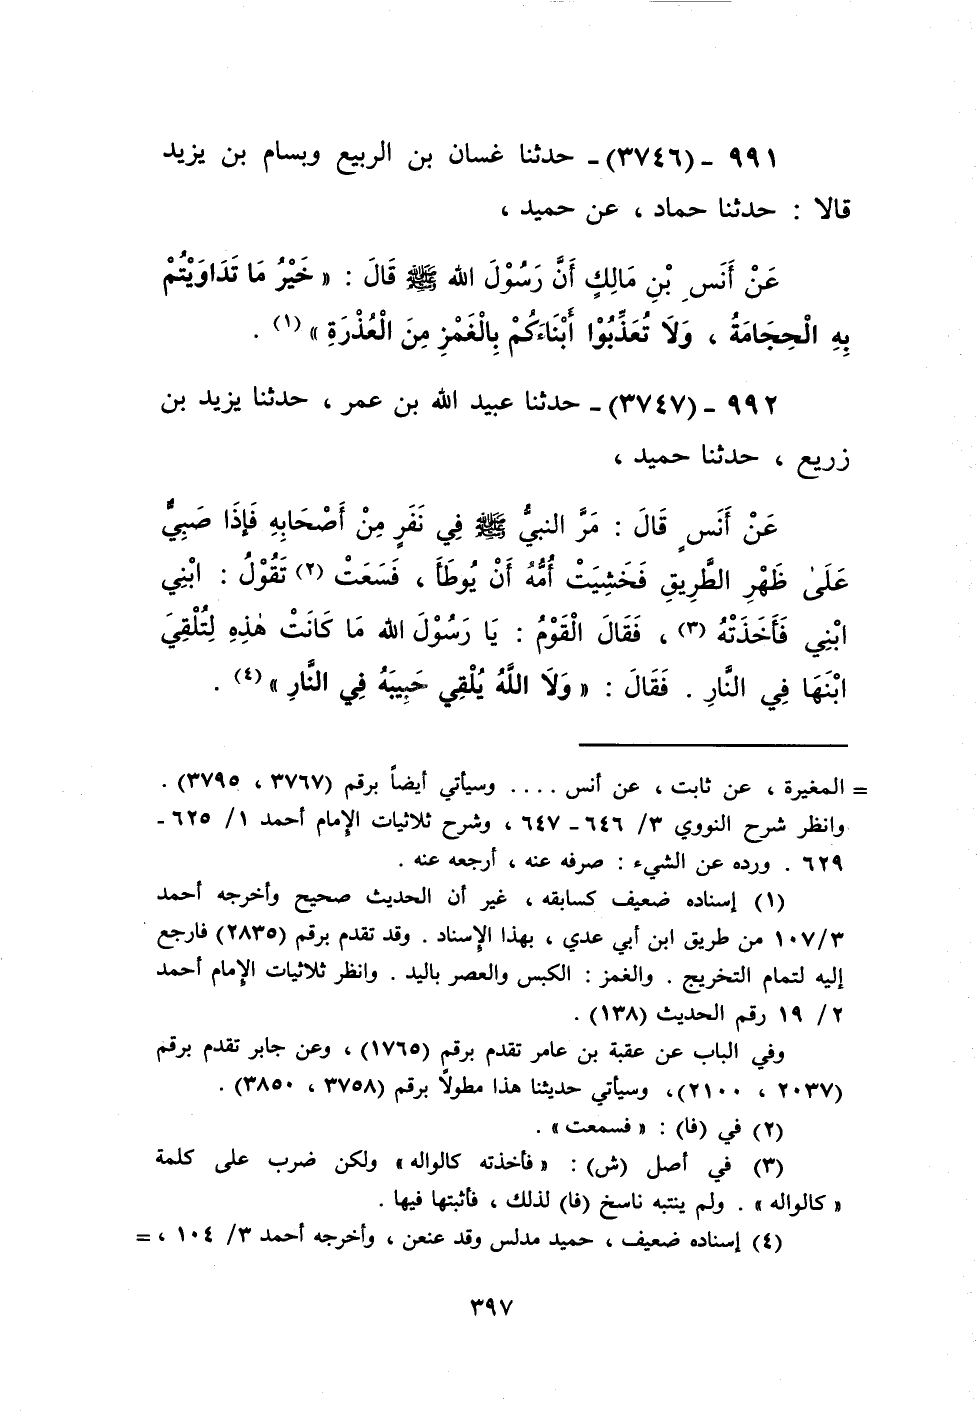 ٩٩١ - (٣٧٤٦) - حدثنا غسان بن الربيع وبسام بن يزيد
قالا : حدثنا حماد ، عن حميد ،
عَنْ أَنَسِ بْنِ مَالِكٍ أَنَّ رَسُوْلَ الله ﷺ قَالَ : « خَيْرُ مَا تَدَاوَيْتُمْ
بِهِ الْحِجَامَةُ ، وَلَا تُعَذِّبُوْا أَبْنَاءَكُمْ بِالْغَمْزِ مِنَ الْعُذْرَةِ » (١) .
٩٩٢ - (٣٧٤٧) - حدثنا عبيد الله بن عمر ، حدثنا يزيد بن
زريع ، حدثنا حميد ،
عَنْ أَنَسٍ قَالَ : مَرَّ النبيُّ ﷺ فِي نَفَرٍ مِنْ أَصْحَابِهِ فَإِذَا صَبِيٌّ
عَلَىٰ ظَهْرِ الطَّرِيقِ فَخَشِيَتْ أُمُّهُ أَنْ يُوطَأَ ، فَسَعَتْ (٢) تَقُوْلُ : ابْنِي
ابْنِي فَأَخَذَتْهُ (٣) ، فَقَالَ الْقَوْمُ : يَا رَسُوْلَ الله مَا كَانَتْ هٰذِهِ لِتُلْقِيَ
ابْنَهَا فِي النَّارِ . فَقَالَ : « وَلَا اللَّهُ يُلْقِي حَبِيبَهُ فِي النَّارِ » (٤) .
= المغيرة ، عن ثابت ، عن أنس .... وسيأتي أيضاً برقم (٣٧٦٧ ، ٣٧٩٥) .
وانظر شرح النووي ٣/ ٦٤٦ - ٦٤٧ ، وشرح ثلاثيات الإمام أحمد ١/ ٦٢٥ -
٦٢٩ . ورده عن الشيء : صرفه عنه ، أرجعه عنه .
(١) إسناده ضعيف كسابقه ، غير أن الحديث صحيح وأخرجه أحمد
٣/١٠٧ من طريق ابن أبي عدي ، بهذا الإسناد . وقد تقدم برقم (٢٨٣٥) فارجع
إليه لتمام التخريج . والغمز : الكبس والعصر باليد . وانظر ثلاثيات الإمام أحمد
٢/ ١٩ رقم الحديث (١٣٨) .
وفي الباب عن عقبة بن عامر تقدم برقم (١٧٦٥) ، وعن جابر تقدم برقم
(٢٠٣٧ ، ٢١٠٠)، وسيأتي حديثنا هذا مطولاً برقم (٣٧٥٨ ، ٣٨٥٠) .
(٢) في (فا) : « فسمعت » .
(٣) في أصل (ش) : « فأخذته كالواله » ولكن ضرب على كلمة
« كالواله » . ولم ينتبه ناسخ (فا) لذلك ، فأثبتها فيها .
(٤) إسناده ضعيف ، حميد مدلس وقد عنعن ، وأخرجه أحمد ٣/ ١٠٤ ، =
٣٩٧